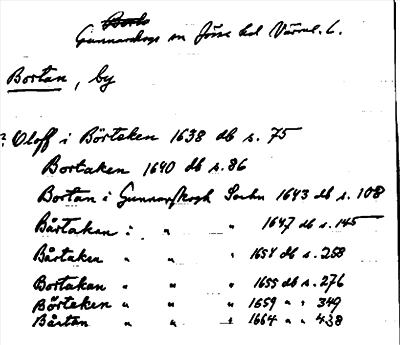 Borts
Gunnarskogs sn Jösse hd Värml. l.
Bortan, by
? Oloff i Börtaken 1638 db s. 75
Bortaken 1640 db s. 86
Bortan i Gunnarskogh Sochn 1643 db s. 108
Bårtaken i " " 1647 db s. 145
Bårtaken " " " 1654 db s. 258
Bortakan " " " 1655 db s. 276
Börtaken " " " 1659 " " 349
Bårtan " " " 1664 " " 438